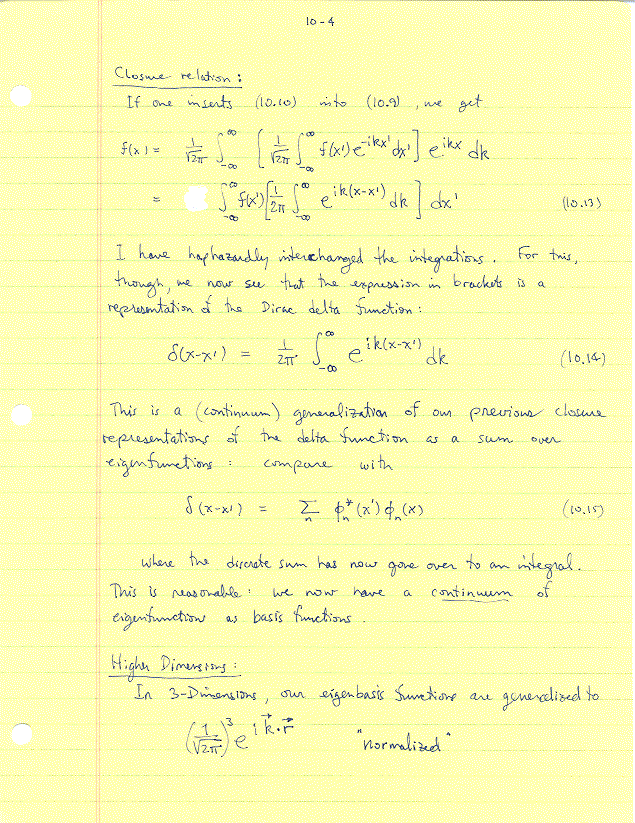 10-4
Closure relation:
If one inserts (10.10) into (10.9), we get
f(x) = 1/√2π ∫_{-∞}^{∞} [ 1/√2π ∫_{-∞}^{∞} f(x') e^{-ikx'} dx' ] e^{ikx} dk
= ∫_{-∞}^{∞} f(x') [ 1/2π ∫_{-∞}^{∞} e^{ik(x-x')} dk ] dx' (10.13)
I have haphazardly interchanged the integrations. For this,
though, we now see that the expression in brackets is a
representation of the Dirac delta function:
δ(x-x') = 1/2π ∫_{-∞}^{∞} e^{ik(x-x')} dk (10.14)
This is a (continuum) generalization of our previous closure
representations of the delta function as a sum over
eigenfunctions: compare with
δ(x-x') = Σ_n φ_n^*(x') φ_n(x) (10.15)
where the discrete sum has now gone over to an integral.
This is reasonable: we now have a continuum of
eigenfunctions as basis functions.
Higher Dimensions:
In 3-Dimensions, our eigenbasis functions are generalized to
(1/√2π)^3 e^{i k⃗·r⃗} "normalized"